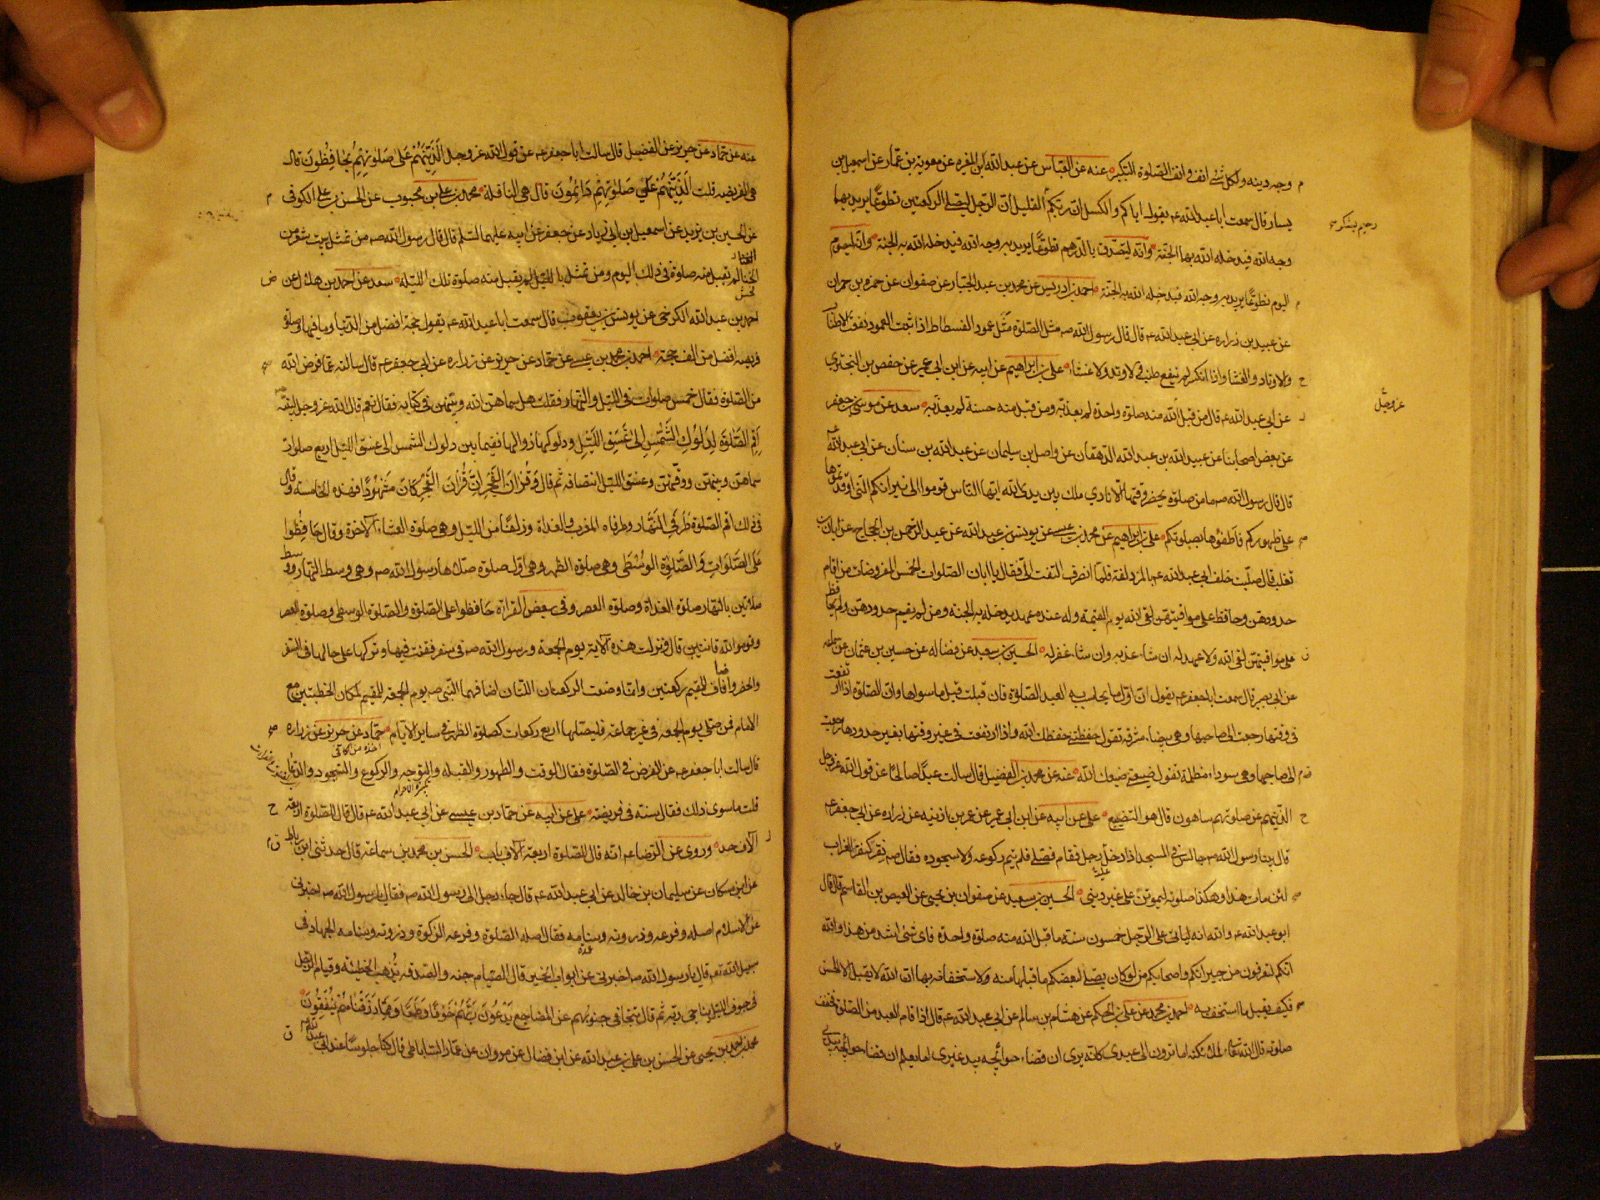 وجه دينه ولكل شئ انف وانف الصلوة التكبير عنه عن العباس عن عبد الله بن المغيره عن معويه بن عمار عن اسمعيل بن
يسار قال سمعت ابا عبد الله عه يقول اياكم والكسل ان ربكم رحيم يشكر القليل ان الرجل ليصلى الركعتين تطوعا يريد بهما
وجه الله فيدخله الله بهما الجنة وانه ليتصدق بالدرهم تطوعا يريد به وجه الله فيدخله الله به الجنة وانه ليصوم
اليوم تطوعا يريد به وجه الله فيدخله الله به الجنة احمد بن ادريس عن محمد بن عبد الجبار عن صفوان عن حمزه بن حمران
عن عبيد بن زراره عن ابى عبد الله عه قال قال رسول الله صه مثل الصلوة مثل عمود الفسطاط اذا ثبت العمود نفع الاطناب
والاوتاد والغشا واذا انكسر لم ينفع طنب ولا وتد ولا غشاء على بن ابراهيم عن ابيه عن ابن ابى عمير عن حفص بن البخترى
عن ابى عبد الله عه قال من قبل الله منه صلوة واحدة لم يعذبه ومن قبل منه حسنة لم يعذبه سعد عن موسى بن جعفر
عن بعض اصحابنا عن عبيد الله بن عبد الله الدهقان عن واصل بن سليمان عن عبد الله بن سنان عن ابى عبد الله عه
قال قال رسول الله صه ما من صلوة يحضر وقتها الا نادى ملك بين يدى الله ايها الناس قوموا الى نيرانكم التى اوقدتموها
على ظهوركم فاطفئوها بصلوتكم على بن ابراهيم عن محمد بن عيسى عن يونس بن عبد الله عن عبد الرحمن بن الحجاج عن ابان بن
تغلب قال صليت خلف ابى عبد الله عه بالمزدلفة فلما انصرف التفت الى فقال يا ابان الصلوات الخمس المفروضات من اقام
حدودهن وحافظ على مواقيتهن لقى الله يوم القيمة وله عنده عهد يدخله به الجنه ومن لم يقم حدودهن ولم يحافظ
على مواقيتهن لقى الله ولا عهد له ان شاء عذبه وان شاء غفر له الحسين بن سعيد عن فضاله عن حسين بن عثمان عن سماعه
عن ابى بصير قال سمعت ابا جعفر عه يقول ان اول ما يحاسب به العبد الصلوة فان قبلت قبل ما سواها وان الصلوة اذا ارتفعت
فى وقتها رجعت الى صاحبها وهى بيضاء مشرقه تقول حفظتنى حفظك الله واذا ارتفعت فى غير وقتها بغير حدودها رجعت
الى صاحبها وهى سوداء مظلمة تقول ضيعتنى ضيعك الله عنه عن محمد بن الفضيل قال سالت عبدا صالحا عن قول الله عز وجل
الذين هم عن صلوتهم ساهون قال هو التضييع على عن ابيه عن ابن ابى عمير عن عمر بن اذينه عن زراره عن ابى جعفر عه
قال بينا رسول الله صه جالس فى المسجد اذ دخل رجل فقام فصلى فلم يتم ركوعه ولا سجوده فقال صه نقر كنقر الغراب
لئن مات هذا وهكذا صلوته ليموتن على غير دينى الحسين بن سعيد عن صفوان بن يحيى عن العيص بن القاسم قال قال
ابو عبد الله عه والله انه لياتى على الرجل خمسون سنة ما قبل الله منه صلوة واحدة فاى شئ اشد من هذا والله
انكم لتعرفون من جيرانكم واصحابكم من لو كان يصلى لبعضكم ما قبلها منه ولا ستخفافه بها ان الله لا يقبل الا الحسن
فكيف يقبل ما استخف به احمد بن محمد عن على بن الحكم عن هشام بن سالم عن ابى عبد الله عه قال اذا قام العبد من الصلوة فخفف
صلوته قال الله تعالى لملائكته اما ترون الى عبدى كانه يرى ان قضاء حوائجه بيد غيرى اما يعلم ان قضاء حوائجه بيدى
عز وجل
عنه عن حماد عن حريز عن الفضيل قال سالت ابا جعفر عه عن قول الله عز وجل الذين هم على صلوتهم يحافظون قال
هى الفريضه قلت الذين هم على صلوتهم دائمون قال هى النافلة محمد بن على بن محبوب عن الحسن بن على الكوفى
عن الحسين بن يزيد عن اسمعيل بن ابى زياد عن جعفر عن ابيه عليهما السلم قال قال رسول الله صه من تمثل ببيت شعر من
الخنا لم يقبل منه صلوة فى ذلك اليوم ومن تمثل بالليل لم يقبل منه صلوة تلك الليلة سعد عن احمد بن هلال عن
احمد بن عبد الله الكرخى عن يونس بن يعقوب قال سمعت ابا عبد الله عه يقول حجة افضل من الدنيا وما فيها وصلوة
فريضه افضل من الف حجة احمد بن محمد بن عيسى عن حماد عن حريز عن زراره عن ابى جعفر عه قال سالته عما فرض الله
من الصلوة فقال خمس صلوات فى الليل والنهار فقلت هل سماهن الله وبينهن فى كتابه فقال نعم قال الله عز وجل لنبيه
اقم الصلوة لدلوك الشمس الى غسق الليل ودلوكها زوالها ففيما بين دلوك الشمس الى غسق الليل اربع صلوات
سماهن وبينهن ووقتهن وغسق الليل انتصافه ثم قال وقران الفجر ان قران الفجر كان مشهودا فهذه الخامسة وقال
فى ذلك اقم الصلوة طرفى النهار وطرفاه المغرب والغداة وزلفا من الليل وهى صلوة العشاء الاخرة وقال حافظوا
على الصلوات والصلوة الوسطى وهى صلوة الظهر وهى اول صلوة صلاها رسول الله صه وهى وسط النهار ووسط
صلاتين بالنهار صلوة الغداة وصلوة العصر وفى بعض القراءة حافظوا على الصلوة والصلوة الوسطى وصلوة العصر
وقوموا لله قانتين قال ونزلت هذه الاية يوم الجمعة ورسول الله صه فى سفر فقنت فيها وتركها على حالها فى السفر
والحضر واضاف للمقيم ركعتين وانما وضعت الركعتان اللتان اضافهما النبى صه يوم الجمعه للمقيم لمكان الخطبتين مع
الامام فمن صلى يوم الجمعه فى غير جماعة فليصلها اربع ركعات كصلوة الظهر فى ساير الايام حماد عن حريز عن زراره
قال سالت ابا جعفر عه عن الفرض فى الصلوة فقال الوقت والطهور والقبله والتوجه والركوع والسجود والدعاء
قلت ما سوى ذلك فقال سنة فى فريضة على عن ابيه عن حماد بن عيسى عن ابى عبد الله عه قال قال للصلوة اربعة
الاف حد وروى عن الرضا عه انه قال للصلوة اربعة الاف باب الحسن بن محمد بن سماعة قال حدثنى ابن رباط
عن ابن مسكان عن سليمان بن خالد عن ابى عبد الله عه قال جاء رجل الى رسول الله صه فقال يا رسول الله صه اخبرنى
عن الاسلام اصله وفرعه وذروته وسنامه فقال اصله الصلوة وفرعه الزكوة وذروته وسنامه الجهاد فى
سبيل الله تعه قال يا رسول الله صه اخبرنى عن ابواب الخير قال الصيام جنه والصدقه تذهب الخطيئة وقيام الرجل
فى جوف الليل يناجى ربه ثم قال تتجافى جنوبهم عن المضاجع يدعون ربهم خوفا وطمعا ومما رزقناهم ينفقون
محمد بن احمد بن يحيى عن الحسن بن على بن عبد الله عن ابن فضال عن مروان عن عمار الساباطى قال كنا جلوسا عند ابى عبد الله عه